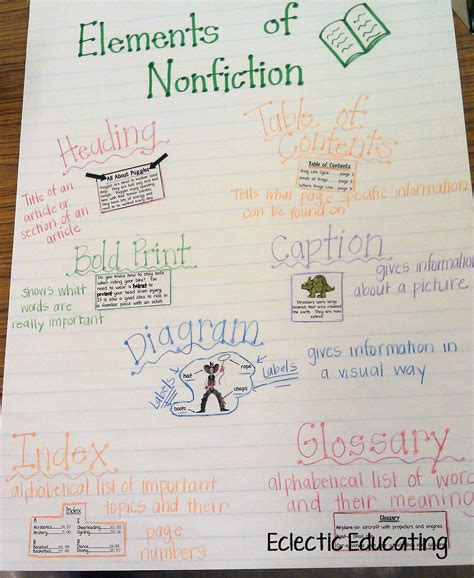 Elements of
Nonfiction
Heading
All About Puggles
Title of an
article or
section of an
article
Table of
Contents
Table of Contents
Frog Life Cycle
page
Kinds of Frogs
page
Where Frogs Live
page
Tells what page specific information
can be found on
Bold Print
Do you know how to stay safe
when riding your bike? You
need to wear a helmet to
protect your head from injury.
It is also a good idea to ride in
a familiar place with an adult.
shows what
words are
really important
Caption
Dinosaurs were large
animals that once roamed
the earth. They are now
extinct.
gives information
about a picture
Diagram
Labels
hat
boots
rope
chaps
Labels
gives information in
a visual way
Index
alphabetical list of important
topics and their
page
numbers
Index
A
Acrobatics
Archery
B
Baseball
Basketball
C
Cheerleading
Cycling
D
Dance
Diving
Glossary
alphabetical list of word
and their meaning
Glossary
Airplane-an aircraft with propellers and engines
Eclectic Educating